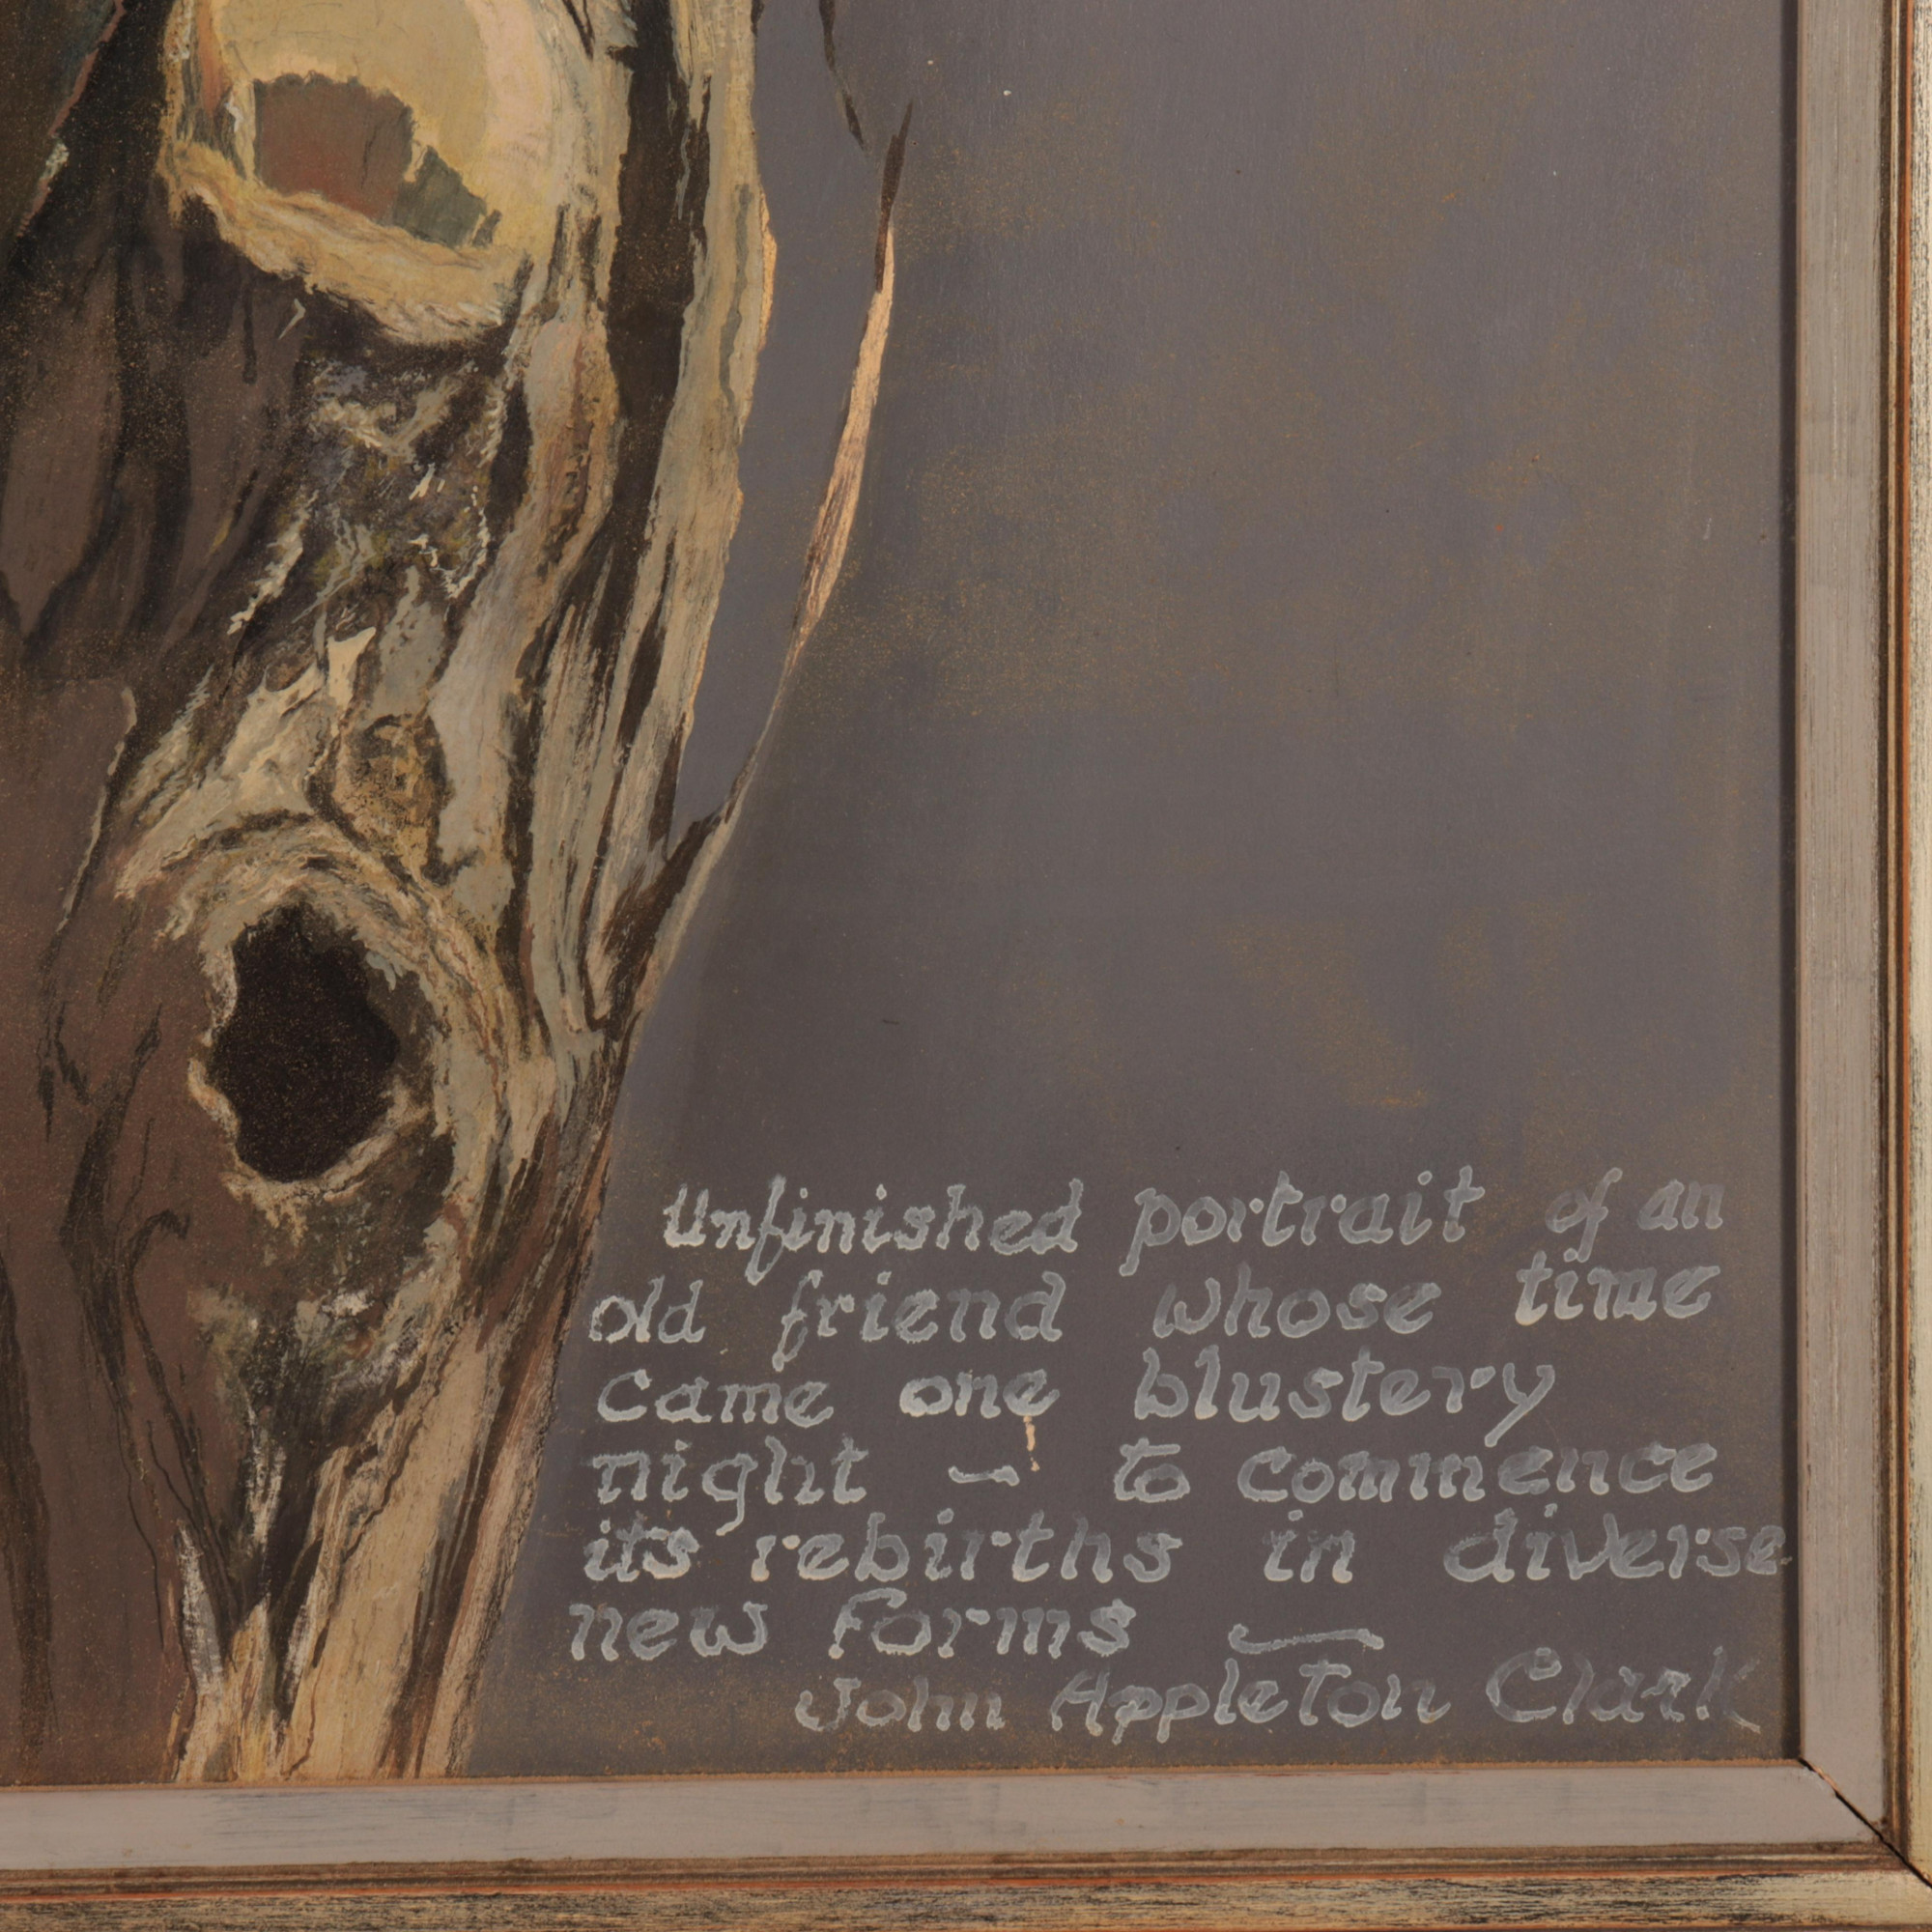 Unfinished portrait of an
old friend whose time
came one blustery
night — to commence
its rebirths in diverse
new forms —
John Appleton Clark